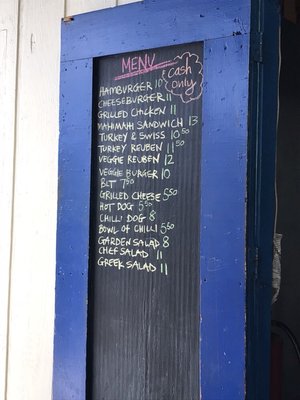 MENU
Cash
only
HAMBURGER 10
CHEESEBURGER 11
GRILLED CHICKEN 11
MAHIMAHI SANDWICH 13
TURKEY & SWISS 10.50
TURKEY REUBEN 11.50
VEGGIE REUBEN 12
VEGGIE BURGER 10
BLT 7.50
GRILLED CHEESE 5.50
HOT DOG 5.50
CHILLI DOG 8
BOWL OF CHILLI 5.50
GARDEN SALAD 8
CHEF SALAD 11
GREEK SALAD 11